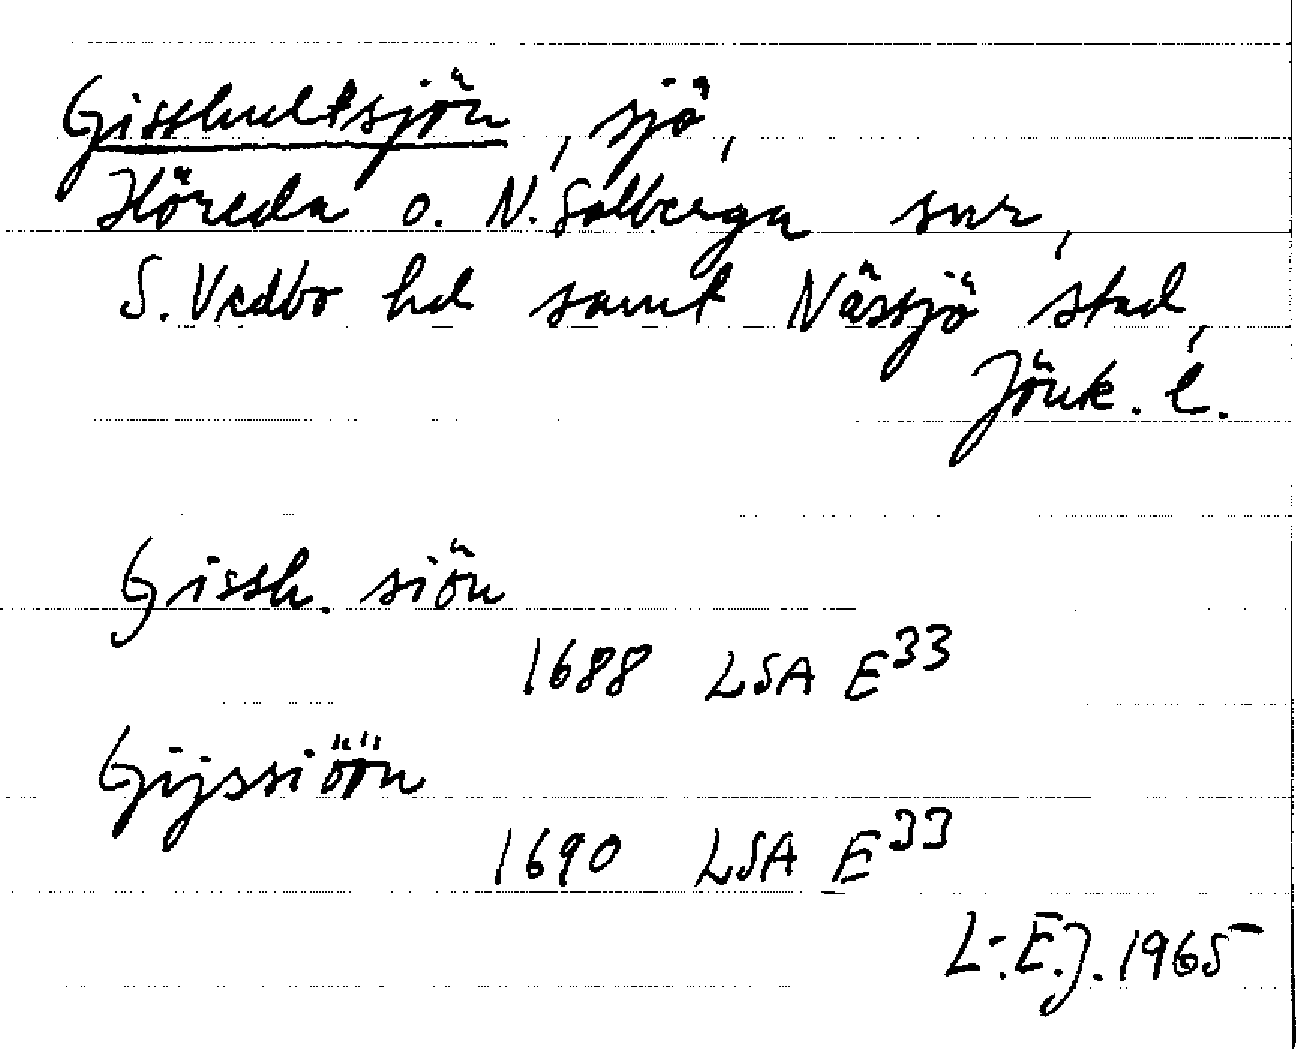 Gisshultsjön, sjö,
Höreda o. N. Solberga snr,
S. Vedbo hd samt Nässjö stad,
Jönk. l.
Gissh. siön
1688 LSA E33
Gijssiöön
1690 LSA E33
L-E.J. 1965